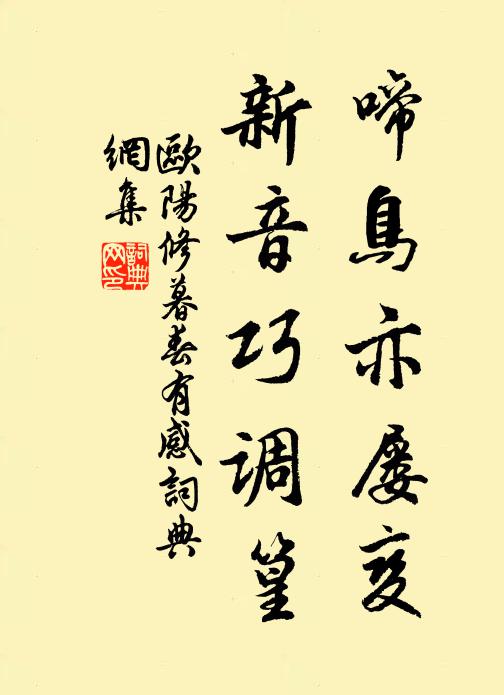 啼鳥亦屡变
新音巧调篁
歐陽修暮春有感詞典
網集
詞典网印